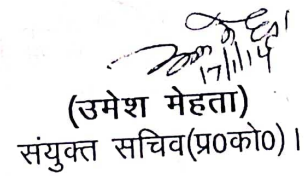 17/1/14
(उमेश मेहता)
संयुक्त सचिव(प्र०को०) ।